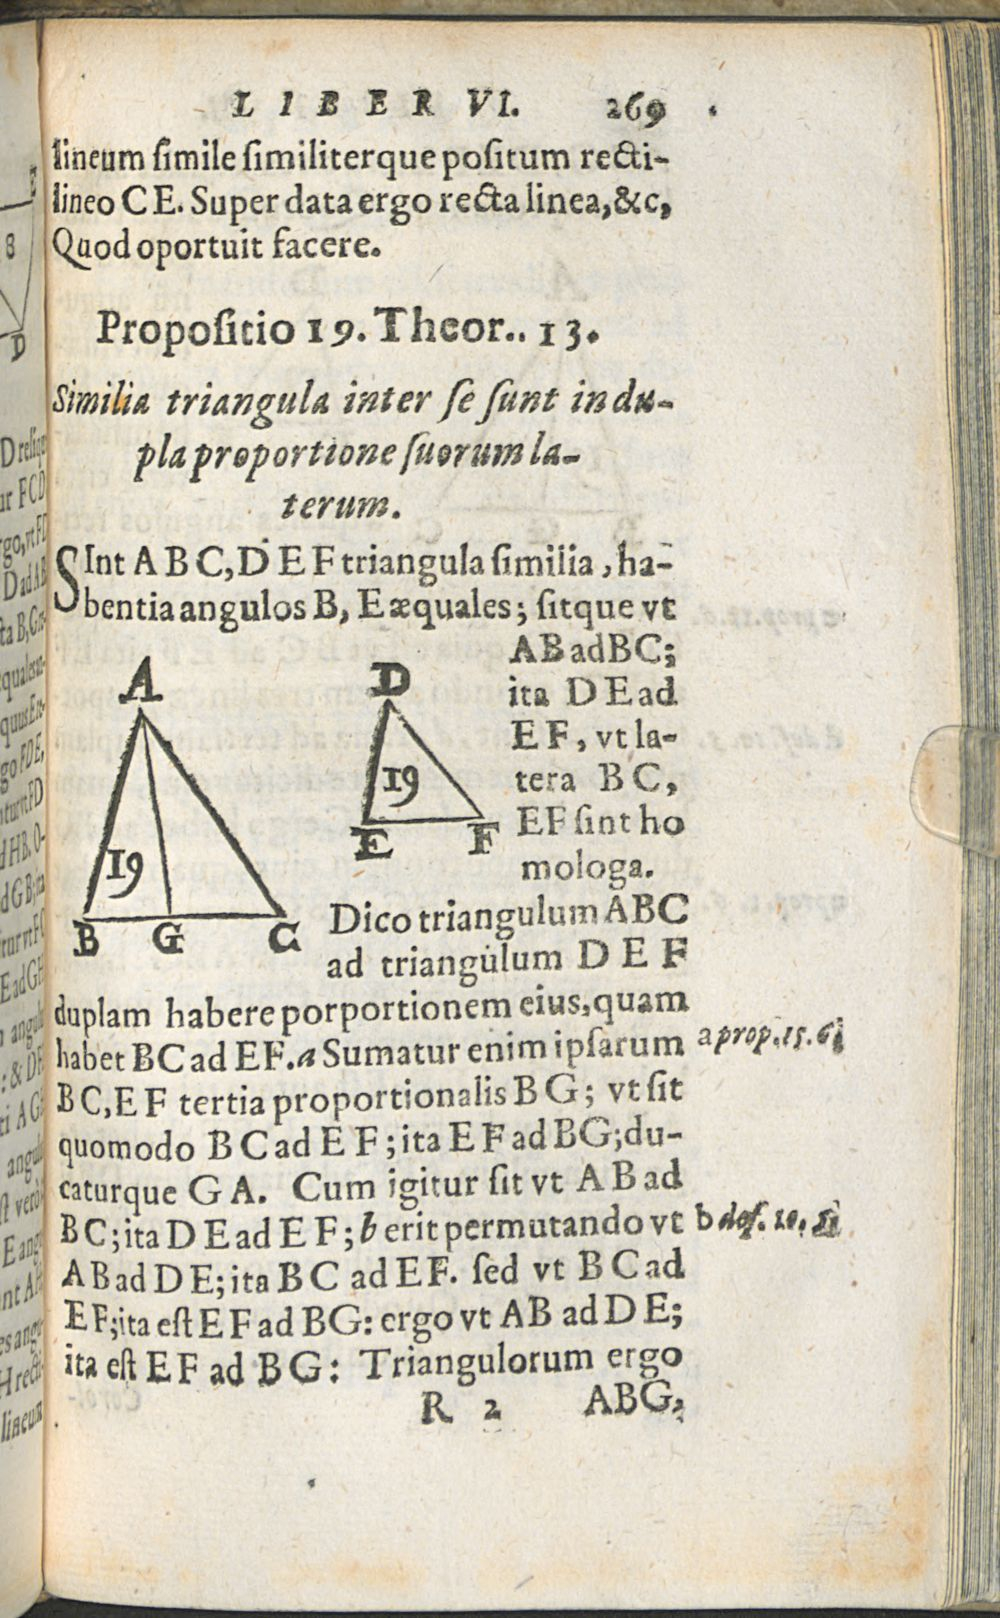 LIBER VI. 269
lineum ſimile ſimiliterque poſitum recti-
lineo C E. Super data ergo recta linea, &c,
Quod oportuit facere.
Propoſitio 19. Theor.. 13.
Similia triangula inter ſe ſunt in du-
pla proportione ſuorum la-
terum.
SInt A B C, D E F triangula ſimilia, ha-
bentia angulos B, E æquales; ſitque vt
AB ad BC;
ita D E ad
E F, vt la-
tera B C,
EF ſint ho
mologa.
A
D
19
E F
19
B G C
Dico triangulum ABC
ad triangulum D E F
duplam habere porportionem eius, quam
habet BC ad EF. a Sumatur enim ipſarum
a prop. 15. 6.
BC, E F tertia proportionalis B G; vt ſit
quomodo B C ad E F; ita E F ad BG; du-
caturque G A. Cum igitur ſit vt A B ad
B C; ita D E ad E F; b erit permutando vt
b def. 10. 5.
A B ad D E; ita B C ad EF. ſed vt B C ad
E F; ita eſt E F ad BG: ergo vt AB ad D E;
ita eſt E F ad B G: Triangulorum ergo
R 2 ABG,